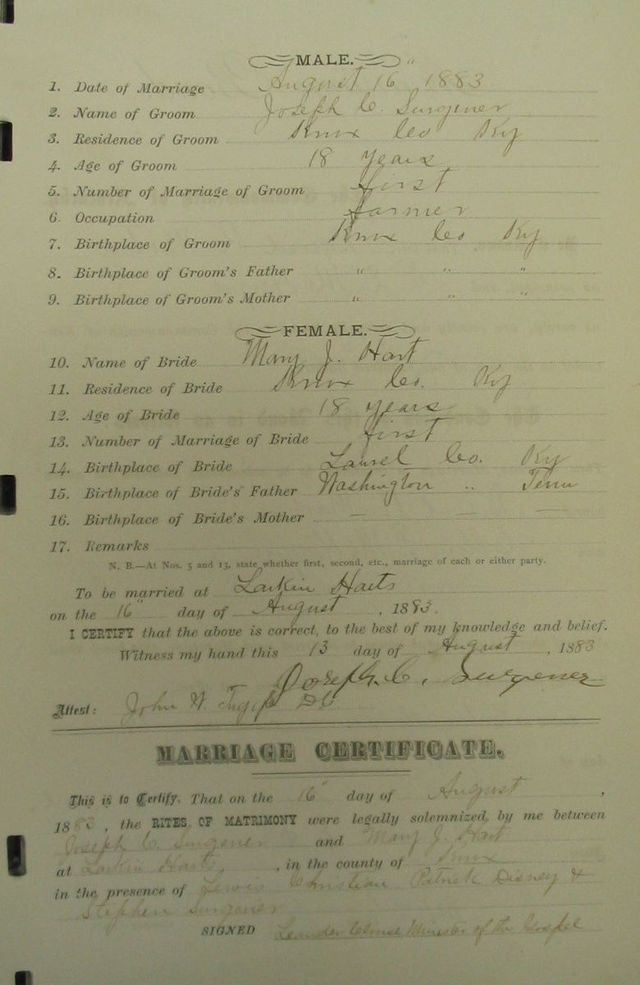 MALE.
1. Date of Marriage August 16 1883
2. Name of Groom Joseph C. Surgener
3. Residence of Groom Knox Co Ky
4. Age of Groom 18 years
5. Number of Marriage of Groom first
6. Occupation farmer
7. Birthplace of Groom Knox Co Ky
8. Birthplace of Groom's Father " " "
9. Birthplace of Groom's Mother " " "
FEMALE.
10. Name of Bride Mary J. Hart
11. Residence of Bride Knox Co. Ky
12. Age of Bride 18 years
13. Number of Marriage of Bride first
14. Birthplace of Bride Laurel Co. Ky
15. Birthplace of Bride's Father Washington " Tenn
16. Birthplace of Bride's Mother — — —
17. Remarks
N. B.—At Nos. 5 and 13, state whether first, second, etc., marriage of each or either party.
To be married at Larkin Harts
on the 16" day of August, 1883.
I CERTIFY that the above is correct, to the best of my knowledge and belief.
Witness my hand this 13 day of August, 1883
Joseph. C. Surgener
Attest: John W
MARRIAGE CERTIFICATE.
This is to Certify, That on the 16" day of August,
1883, the RITES OF MATRIMONY were legally solemnized by me between
Joseph C. Surgener and Mary J. Hart
at Larkin Harts, in the county of Knox
in the presence of Lewis Christian Patrick Disney &
Stephen Surgener
SIGNED Leander Minister of the Gospel